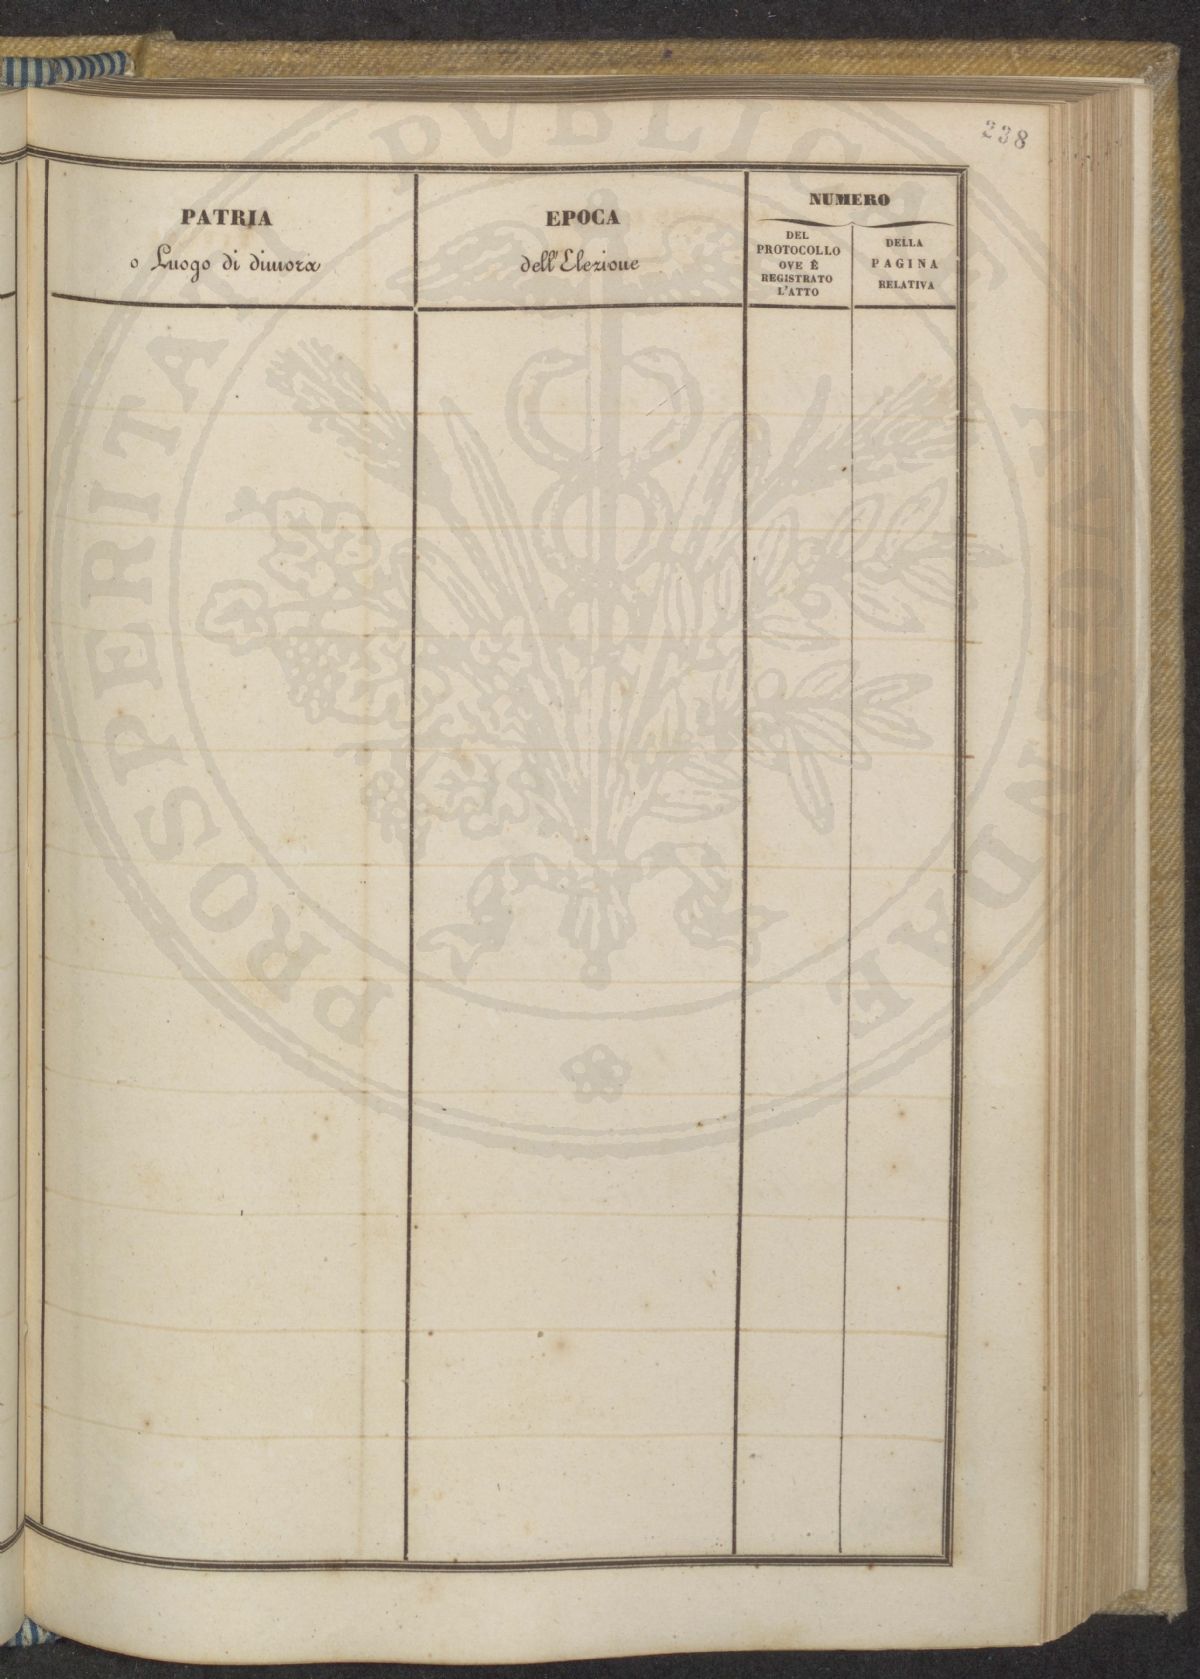 238
PATRIA
o Luogo di dimora
EPOCA
dell'Elezione
NUMERO
DEL
PROTOCOLLO
OVE È
REGISTRATO
L'ATTO
DELLA
PAGINA
RELATIVA
PROSPERITATI PVBLICAE AVGENDAE